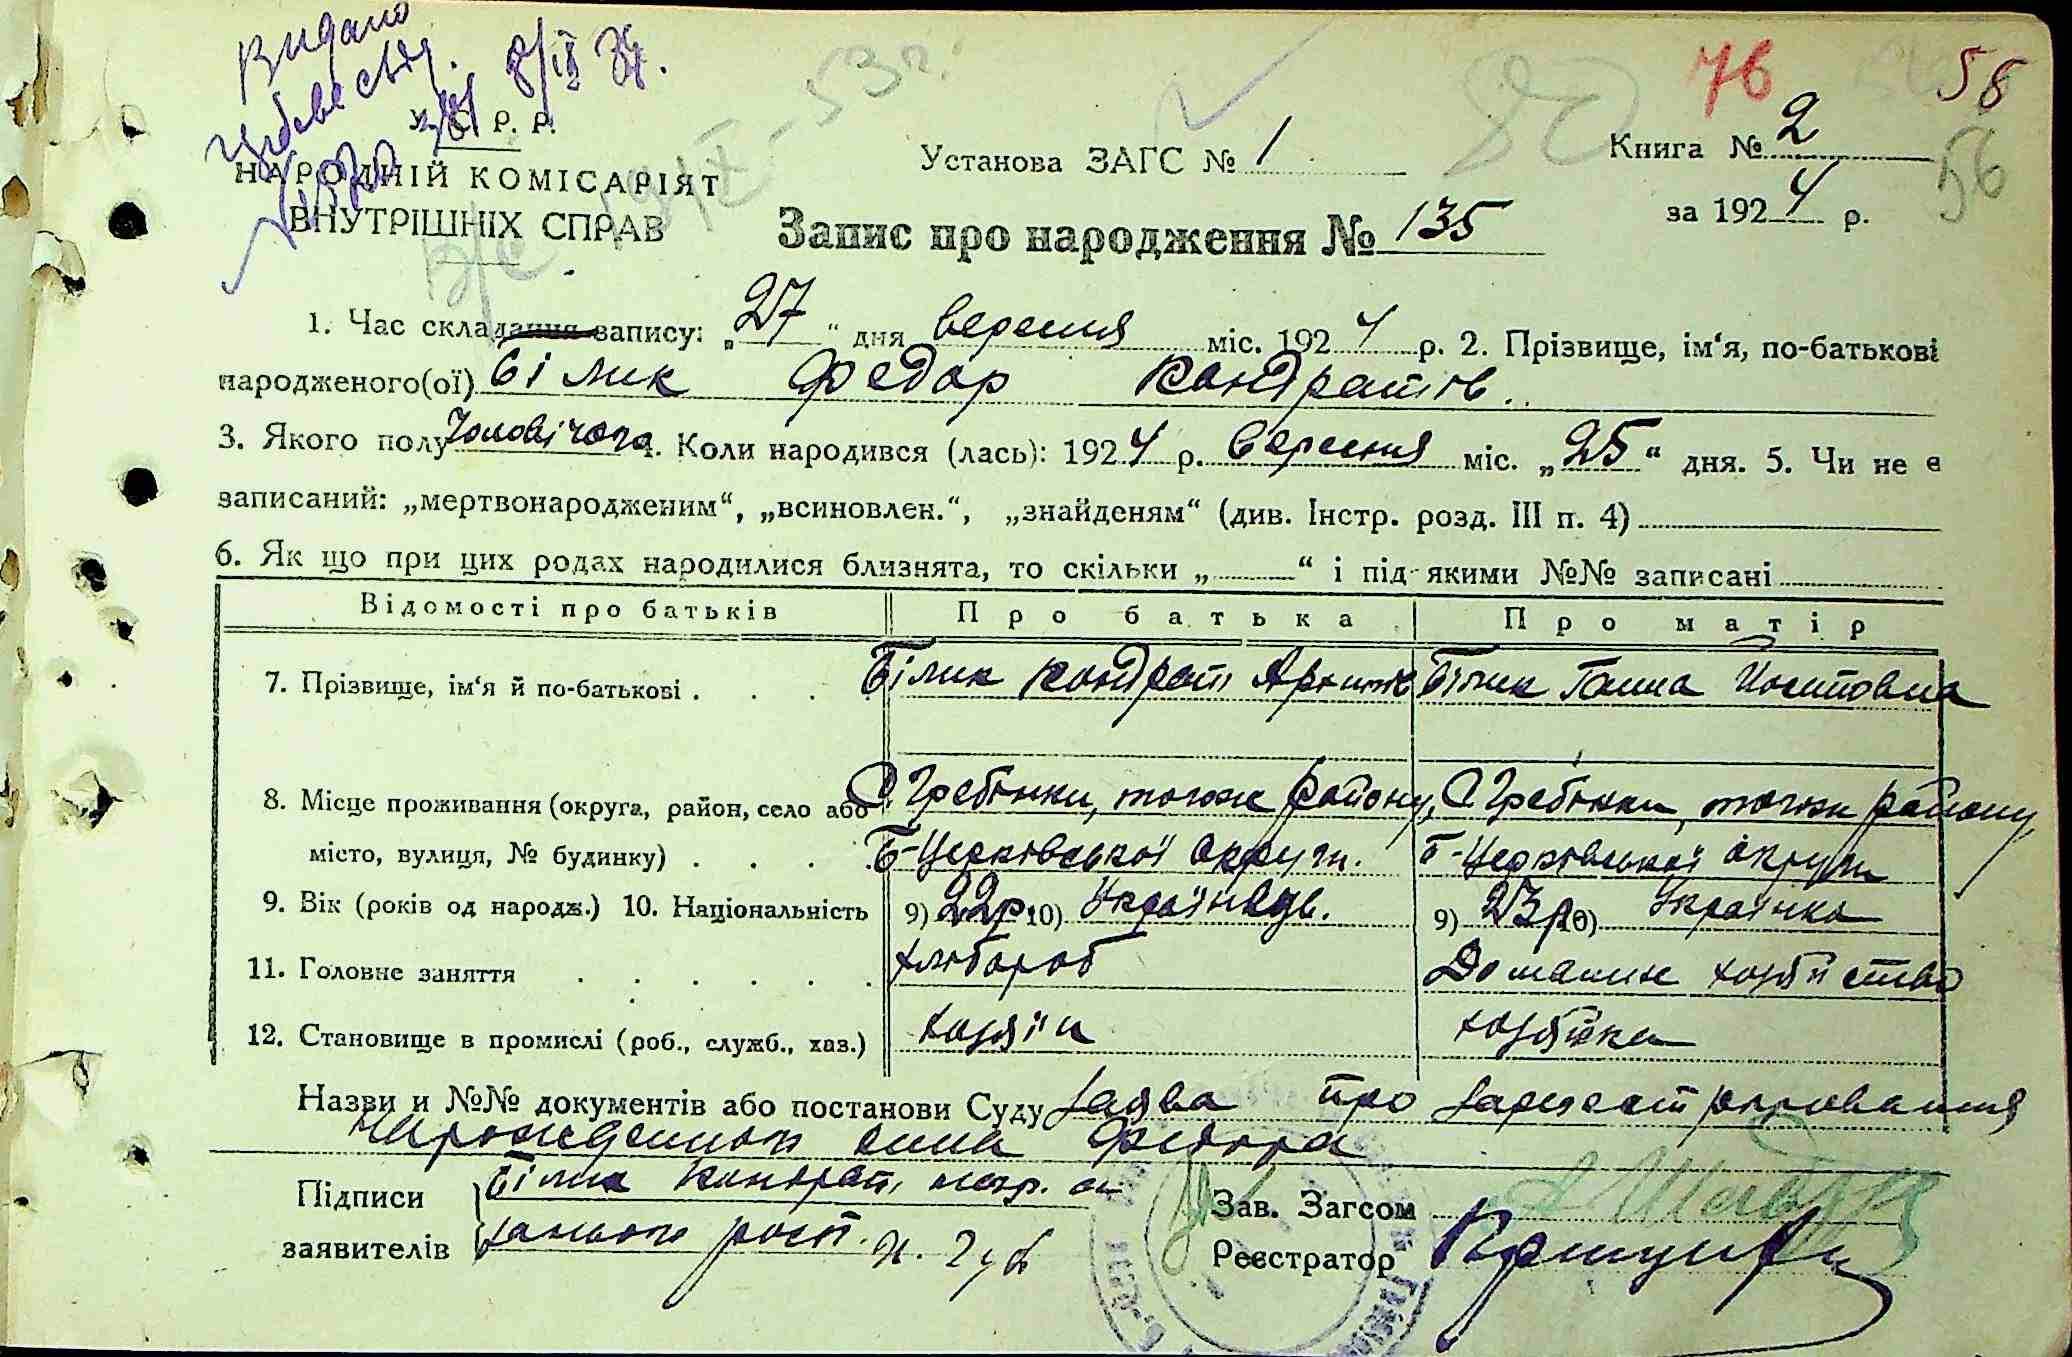 Видано
У. С. Р. Р.
НАРОДНІЙ КОМІСАРІЯТ
ВНУТРІШНІХ СПРАВ
53 г.
Установа ЗАГС № 1
76 58
Книга № 2
56
за 1924 р.
Запис про народження № 135
1. Час складання запису: „27“ дня вересня міс. 1924 р. 2. Прізвище, ім‘я, по-батькові
народженого(ої) Білик Федор Кондратів.
3. Якого полу Чоловічого 4. Коли народився (лась): 1924 р. вересня міс. „25“ дня. 5. Чи не є
записаний: „мертвонародженим“, „всиновлен.“, „знайденям“ (див. Інстр. розд. III п. 4)
6. Як що при цих родах народилися близнята, то скільки „ “ і під якими №№ записані
Відомості про батьків Про батька Про матір
7. Прізвище, ім‘я й по-батькові . . . Білик Кондрат Білик Ганна Йосиповна
8. Місце проживання (округа, район, село або С. Гребінки, тогож району, С. Гребінки, тогож району,
місто, вулиця, № будинку) . . . Б-Церківської округи. Б-Церківської округи
9. Вік (років од народж.) 10. Національність 9) 22 р. 10) Українець. 9) 23 р. 10) Українка
11. Головне заняття . . . . . . хлібороб Домашнє хозяйство
12. Становище в промислі (роб., служб., хаз.) хозяїн хозяйка
Назви и №№ документів або постанови Суду заява про зарегестрировання
нарожденного сина Федора
Підписи
заявителів
Білик Кондрат
Зав. Загсом
Реєстратор